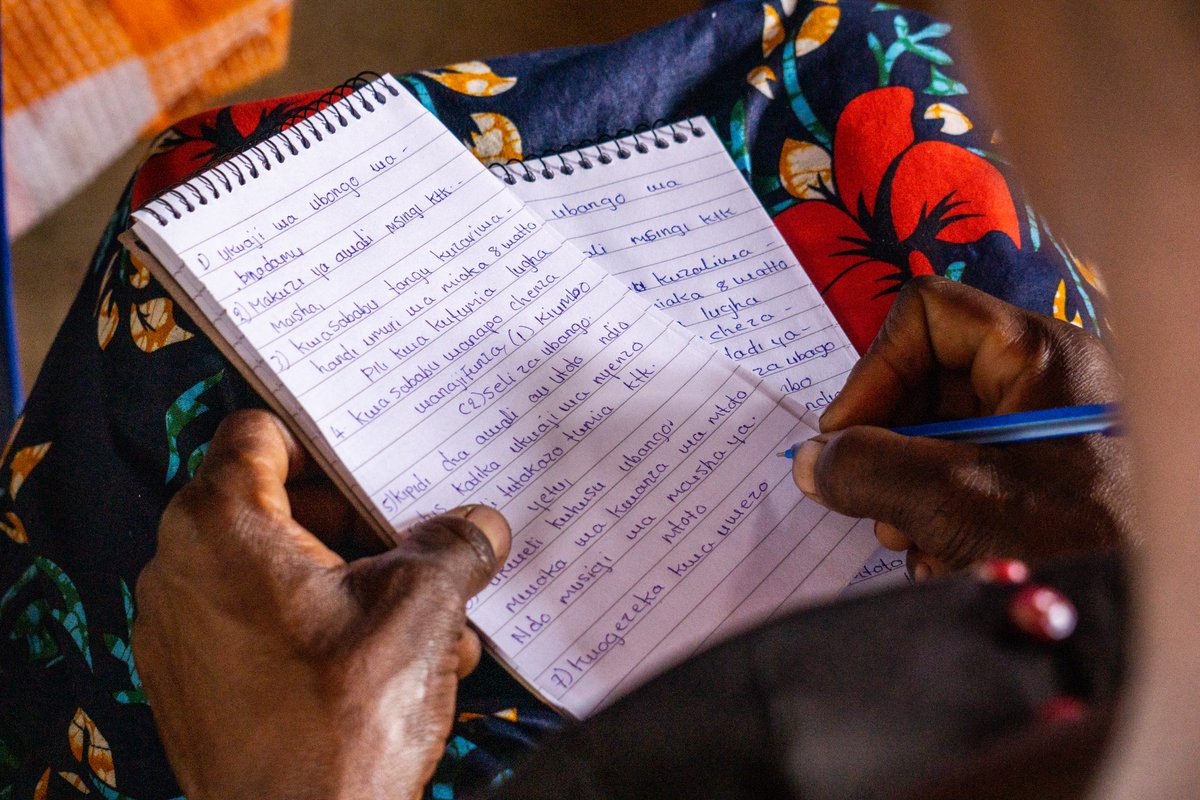 1) Ukuaji wa ubongo wa-
binadamu
2) Makuzi ya awali msingi ktk.-
Maisha,
3) Kwasababu tangu kuzariwa-
handi umuri wa miaka 8 watto
Pili kwa kutumia lugha
4 Kwasababu wanapo cheza
wanajifunza (1) Kiumbo
(2) seli za ubongo.
5) Kipidi cha awali au utoto ndio
katika ukuaji wa nyenzo
tutakazo tumia ktk.
yetu,
ukweli kuhusu ubango.
Mwaka wa kwanza wa mtoto
Ndo musigi wa maisha ya.
mtoto
7) Kuogezeka kwa uwezo
ubango wa
msingi ktk
kuzaliwa-
miaka 8 watto
lugha
cheza-
ya-
za ubago